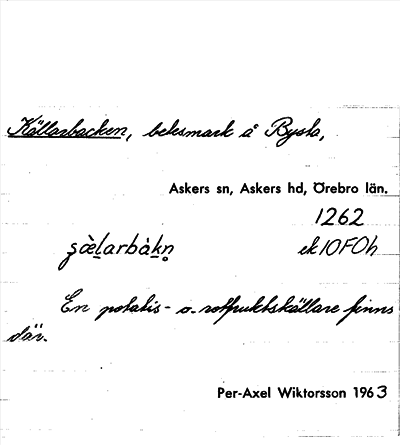 Källarbacken, betesmark å Rysta,
Askers sn, Askers hd, Örebro län.
1262
ʂæ̀l̠arbàk̠n̥ ek 10F0h
En potatis- o. rotfruktskällare finns
där.
Per-Axel Wiktorsson 1963